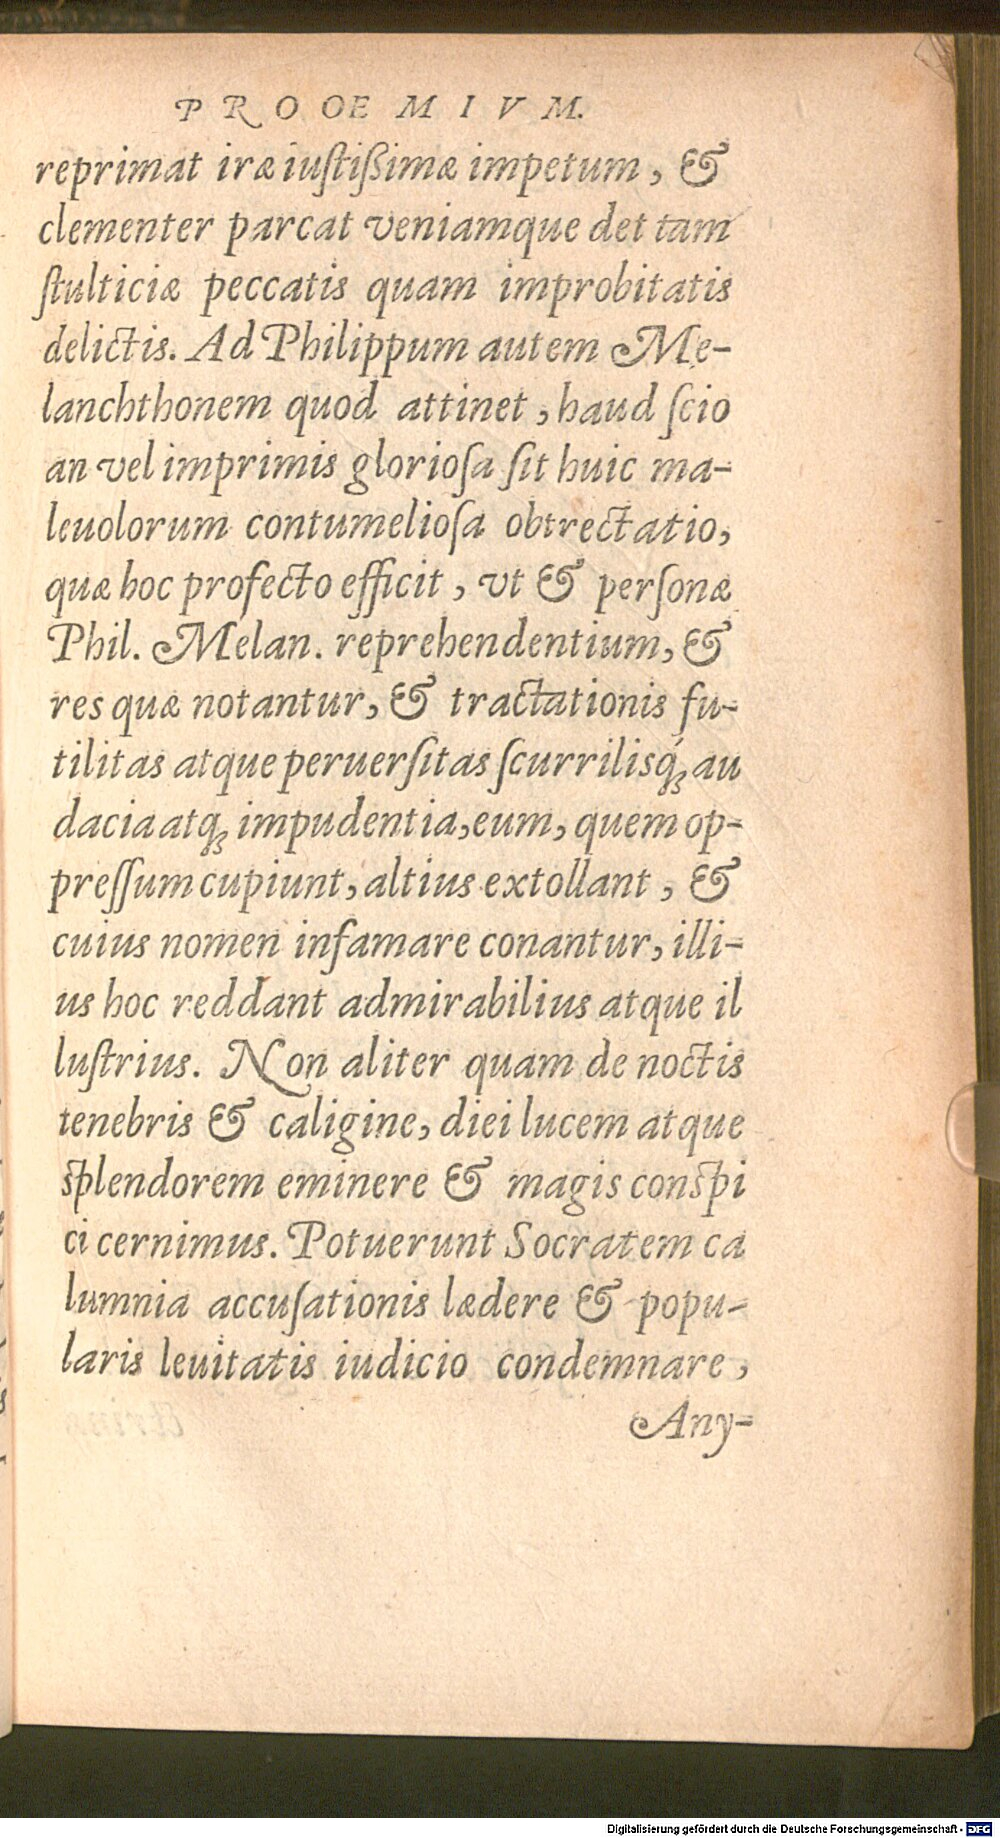 PROOEMIVM.
reprimat iræ iustißimæ impetum, &
clementer parcat veniamque det tam
ſtulticiæ peccatis quam improbitatis
delictis. Ad Philippum autem Me-
lanchthonem quod attinet, haud ſcio
an vel imprimis glorioſa ſit huic ma-
leuolorum contumelioſa obtrectatio,
quæ hoc profecto efficit, vt & perſonæ
Phil. Melan. reprehendentium, &
res quæ notantur, & tractationis fu-
tilitas atque peruerſitas ſcurrilisq́; au
dacia atq; impudentia, eum, quem op-
preſſum cupiunt, altius extollant, &
cuius nomen infamare conantur, illi-
us hoc reddant admirabilius atque il
luſtrius. Non aliter quam de noctis
tenebris & caligine, diei lucem atque
ſplendorem eminere & magis conſpi
ci cernimus. Potuerunt Socratem ca
lumnia accuſationis lædere & popu-
laris leuitatis iudicio condemnare,
Any-
Digitalisierung gefördert durch die Deutsche Forschungsgemeinschaft - DFG